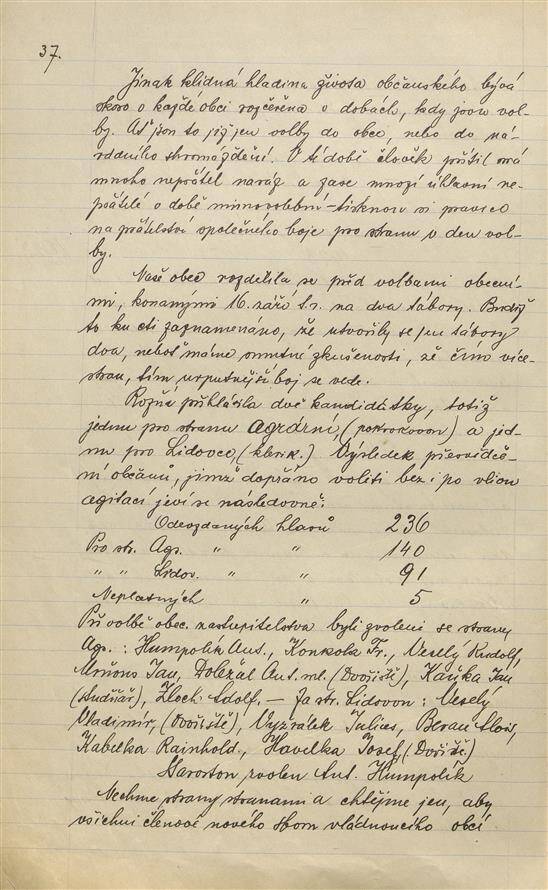 37.
Jinak klidná hladina života občanského bývá
skoro v každé obci rozčeřena v dobách, kdy jsou vol-
by. Ať jsou to již jen volby do obce, nebo do ná-
rodního shromáždění. V té době člověk přítil má
mnoho nepřátel naráz a zase mnozí úhlavní ne-
přátelé v době mimovolební – tisknou si pravice
na přátelství společného boje pro stranu v den vol-
by.
Naše obec rozdělila se před volbami obecní-
mi, konanými 16. září t.r. na dva tábory. Budiž
to ku cti zaznamenáno, že utvořily se jen tábory
dva, neboť máme smutné zkušenosti, že čím více
stran, tím urputnější boj se vede.
Rozná přihlásila dvě kandidátky, totiž
jednu pro stranu agrární, (pokrokovou) a jed-
nu pro Lidovce, (klerik.) Výsledek přesvědče-
ní občanů, jimž dopřáno voliti bez i po vlivu
agitací jeví se následovně:
Odevzdaných hlasů 236
Pro str. Agr. " " 140
" " Lidov. " " 91
Neplatných " 5
Při volbě obec. zastupitelstva byli zvoleni se strany
Agr. : Humpolík Ant., Konkola Fr., Veselý Rudolf,
Jan, Doležal Ant. ml. (Dvořiště), Kaňka Jan
Zloch Adolf. – Za str. Lidovou : Veselý
Vladimír, (Dvořiště), Vyzrálek Julius, Beran Alois,
Kabelka Rainhold., Havelka Josef, (Dvořiště.)
Starostou zvolen Ant. Humpolík
Nechme strany stranami a chtějme jen, aby
všichni členové nového sboru vládnoucího obci